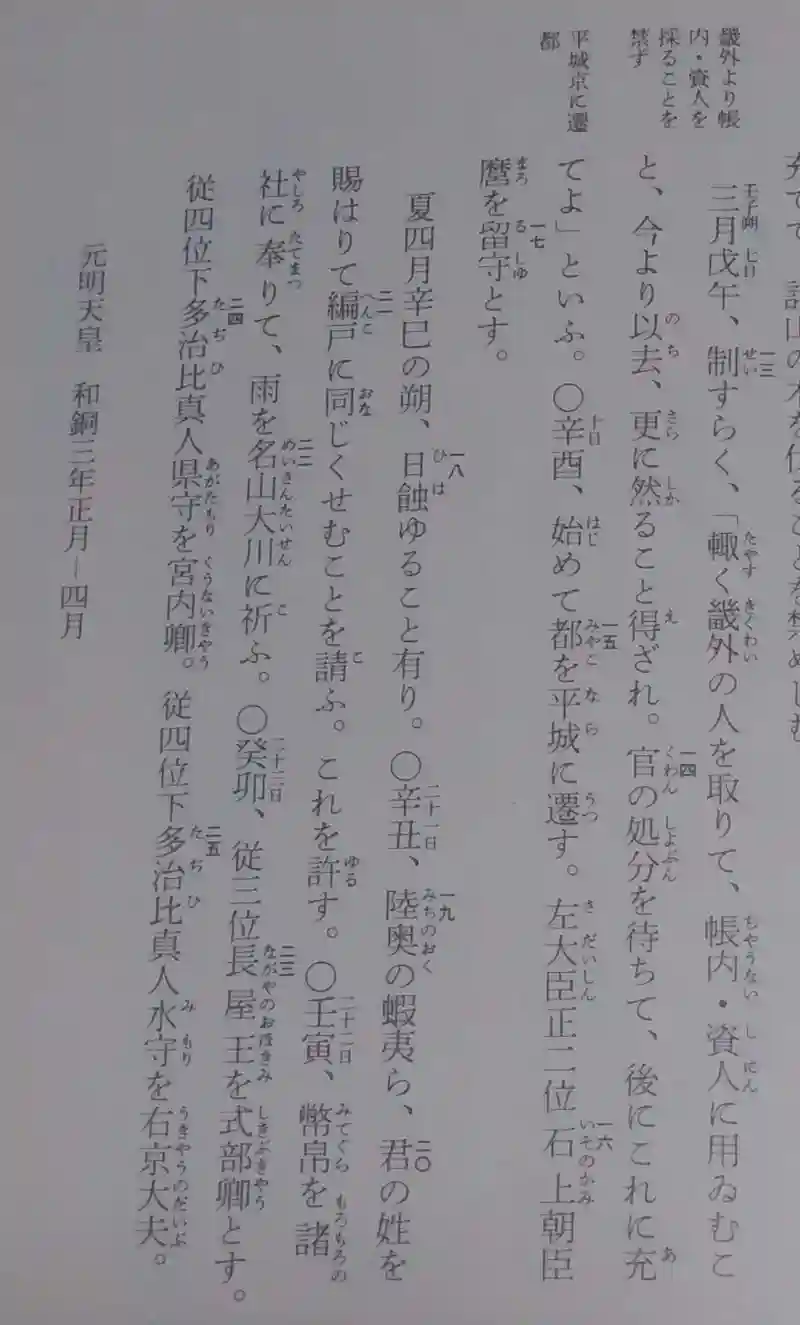 畿外より帳
内・資人を
採ることを
禁ず
平城京に遷
都
三月戊午、制すらく、「輙く畿外の人を取りて、帳内・資人に用ゐむこ
と、今より以去、更に然ること得ざれ。官の処分を待ちて、後にこれに充
てよ」といふ。〇辛酉、始めて都を平城に遷す。左大臣正二位石上朝臣
麿を留守とす。
夏四月辛巳の朔、日蝕ゆること有り。〇辛丑、陸奥の蝦夷ら、君の姓を
賜はりて編戸に同じくせむことを請ふ。これを許す。〇壬寅、幣帛を諸
社に奉りて、雨を名山大川に祈ふ。〇癸卯、従三位長屋王を式部卿とす。
従四位下多治比真人県守を宮内卿。従四位下多治比真人水守を右京大夫。
元明天皇 和銅三年正月―四月